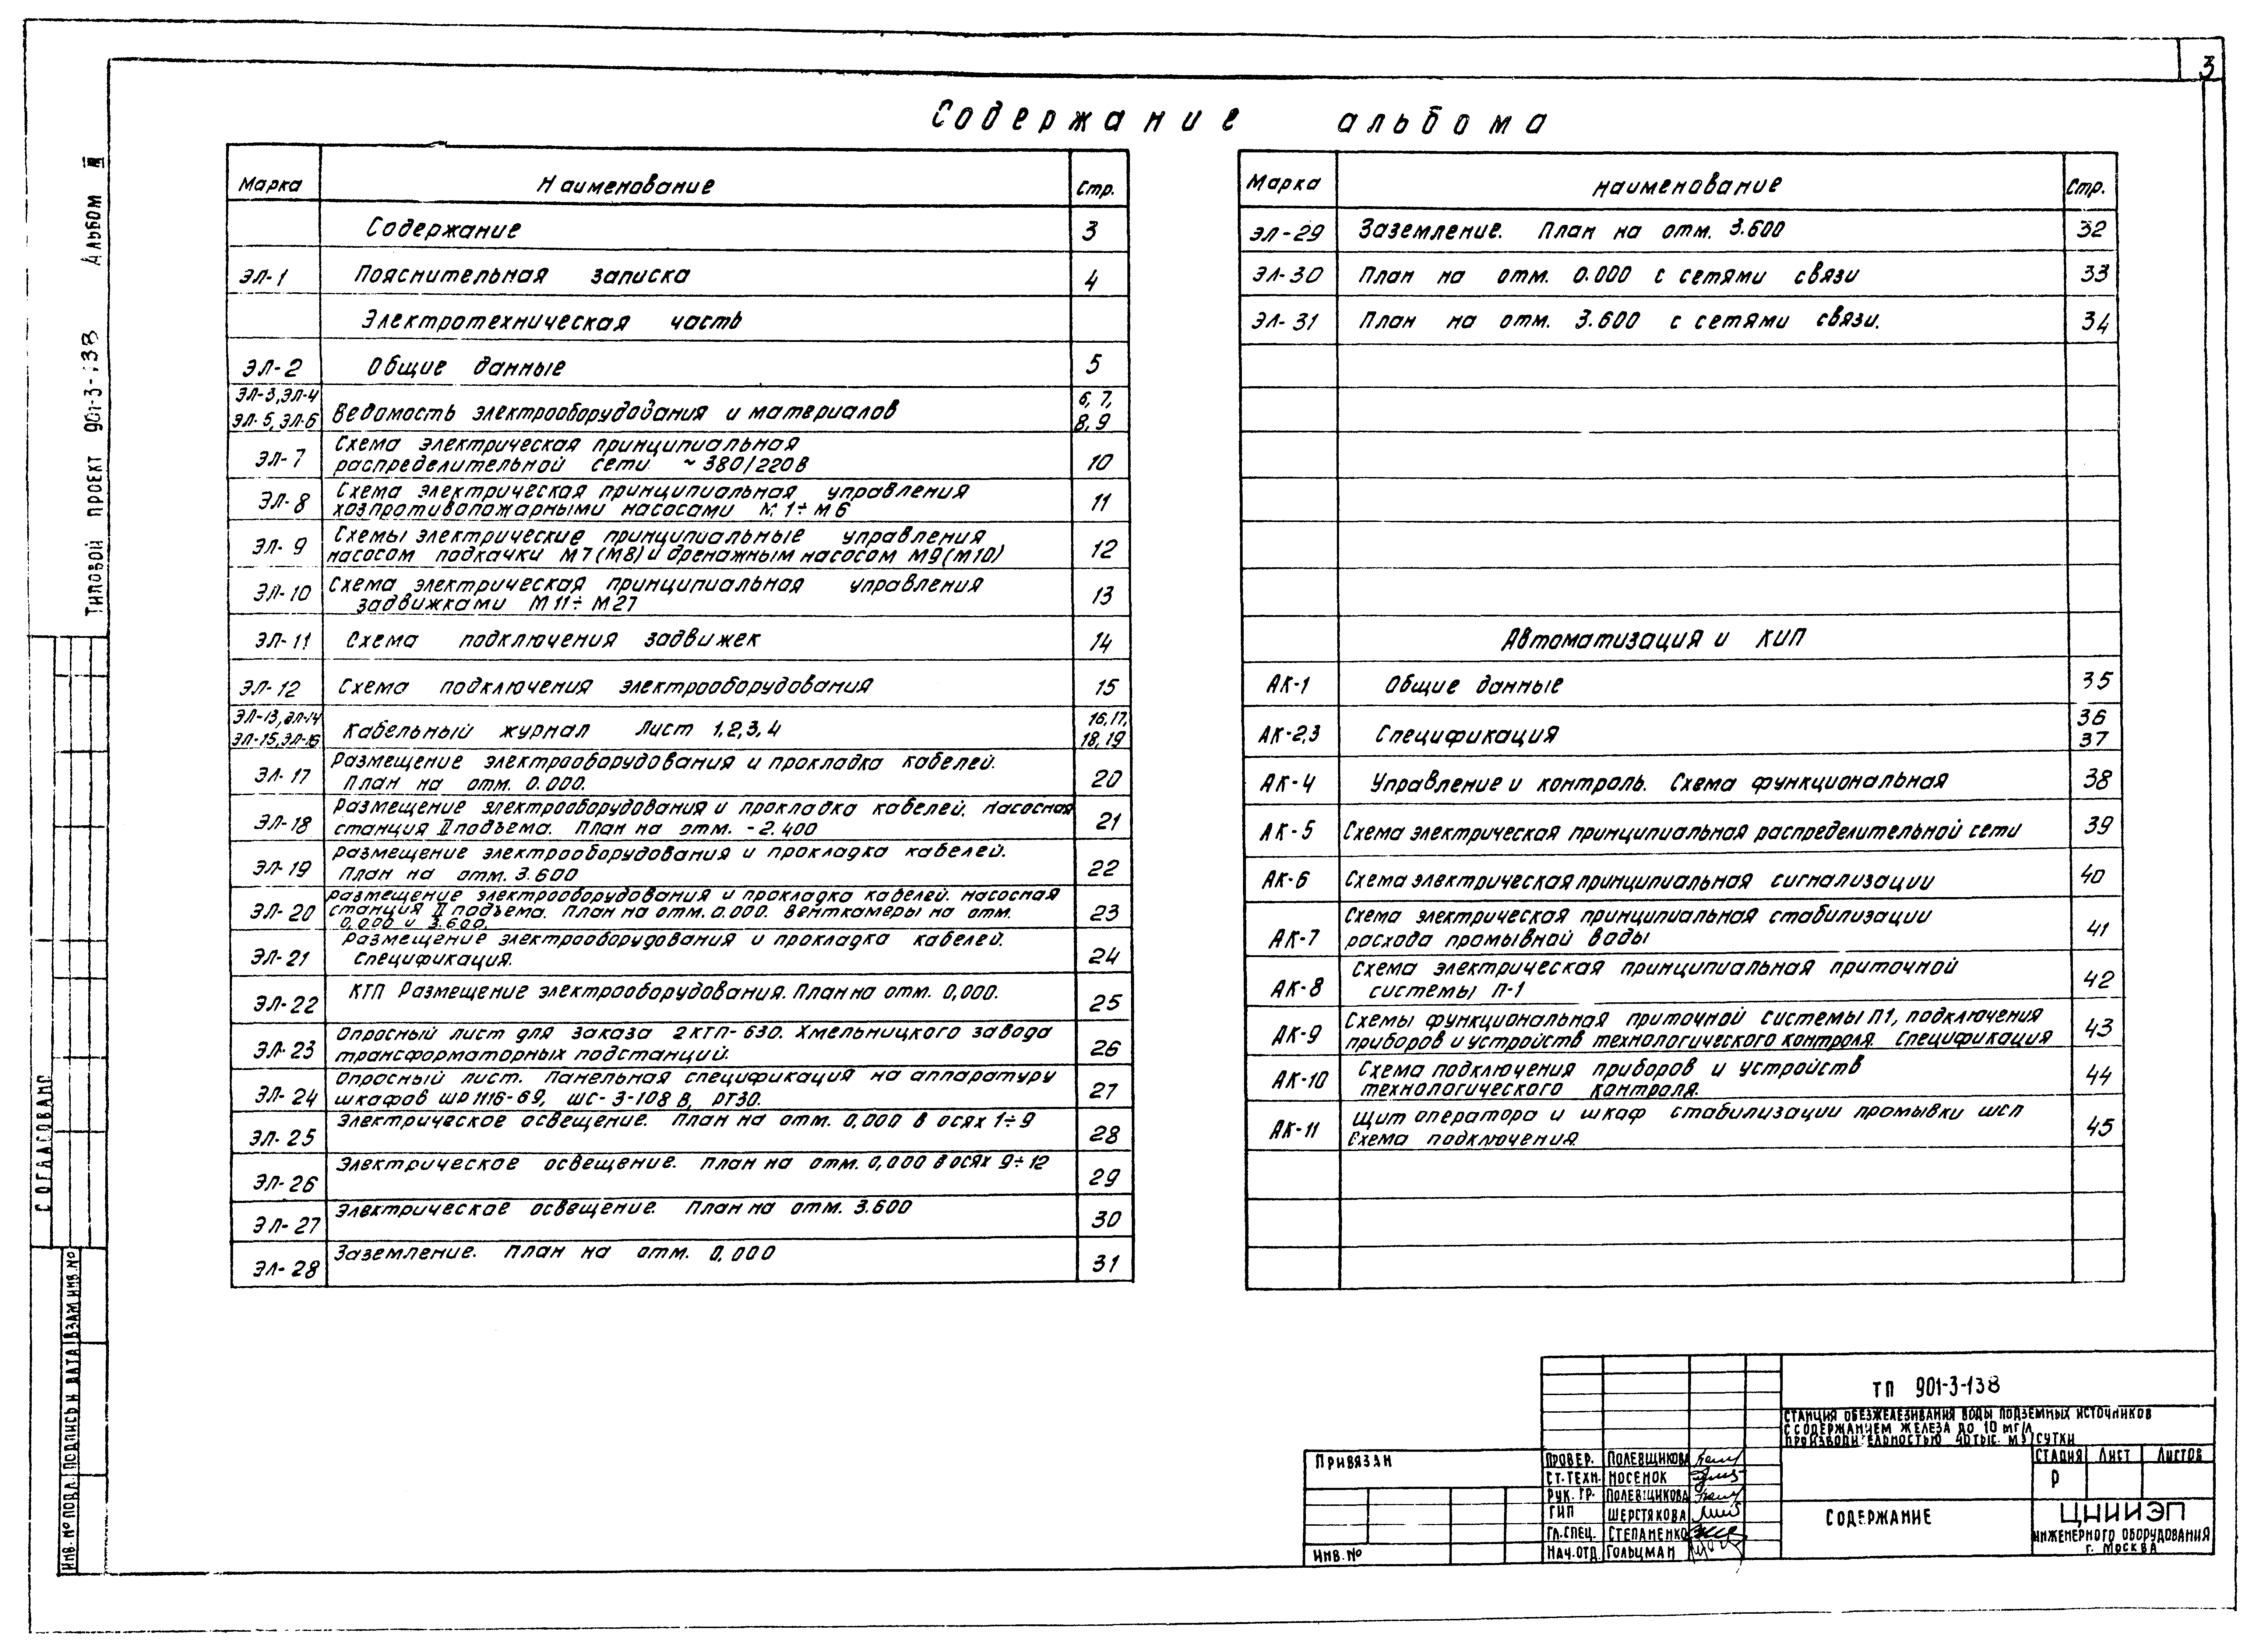 3
Содержание альбома
Марка Наименование Стр.
Содержание 3
ЭЛ-1 Пояснительная записка 4
Электротехническая часть
ЭЛ-2 Общие данные 5
ЭЛ-3, ЭЛ-4 6, 7,
ЭЛ-5, ЭЛ-6 Ведомость электрооборудования и материалов 8, 9
ЭЛ-7 Схема электрическая принципиальная
распределительной сети ~ 380/220В 10
ЭЛ-8 Схема электрическая принципиальная управления
хозпротивопожарными насосами М 1÷М6 11
ЭЛ-9 Схемы электрические принципиальные управления
насосом подкачки М7(М8) и дренажным насосом М9(М10) 12
ЭЛ-10 Схема электрическая принципиальная управления
задвижками М11÷М27 13
ЭЛ-11 Схема подключения задвижек 14
ЭЛ-12 Схема подключения электрооборудования 15
ЭЛ-13, ЭЛ-14 16,17,
ЭЛ-15, ЭЛ-16 Кабельный журнал Лист 1,2,3,4 18,19
ЭЛ-17 Размещение электрооборудования и прокладка кабелей.
План на отм. 0.000. 20
ЭЛ-18 Размещение электрооборудования и прокладка кабелей. Насосная
станция II подъема. План на отм. -2.400 21
ЭЛ-19 Размещение электрооборудования и прокладка кабелей.
План на отм. 3.600 22
ЭЛ-20 Размещение электрооборудования и прокладка кабелей. Насосная
станция II подъема. План на отм. 0.000. Венткамеры на отм.
0,000 и 3.600. 23
ЭЛ-21 Размещение электрооборудования и прокладка кабелей.
Спецификация. 24
ЭЛ-22 КТП Размещение электрооборудования. План на отм. 0,000. 25
ЭЛ-23 Опросный лист для заказа 2КТП-630. Хмельницкого завода
трансформаторных подстанций. 26
ЭЛ-24 Опросный лист. Панельная спецификация на аппаратуру
шкафов ШР1116-69, ШС-3-108 В, РТ30. 27
ЭЛ-25 Электрическое освещение. План на отм. 0,000 в осях 1÷9 28
ЭЛ-26 Электрическое освещение. План на отм. 0,000 в осях 9÷12 29
ЭЛ-27 Электрическое освещение. План на отм. 3.600 30
ЭЛ-28 Заземление. План на отм. 0,000 31
Марка Наименование Стр.
ЭЛ-29 Заземление. План на отм. 3.600 32
ЭЛ-30 План на отм. 0.000 с сетями связи 33
ЭЛ-31 План на отм. 3.600 с сетями связи. 34
Автоматизация и КИП
АК-1 Общие данные 35
АК-2,3 Спецификация 36
37
АК-4 Управление и контроль. Схема функциональная 38
АК-5 Схема электрическая принципиальная распределительной сети 39
АК-6 Схема электрическая принципиальная сигнализации 40
АК-7 Схема электрическая принципиальная стабилизации
расхода промывной воды 41
АК-8 Схема электрическая принципиальная приточной
системы П-1 42
АК-9 Схемы функциональная приточной системы П1, подключения
приборов и устройств технологического контроля. Спецификация 43
АК-10 Схема подключения приборов и устройств
технологического контроля. 44
АК-11 Щит оператора и шкаф стабилизации промывки ШСП
Схема подключения. 45
Типовой проект 901-3-138 Альбом
Согласовано
Инв. № подл. Подпись и дата Взам инв. №
Привязан
Инв. №
Провер. Полевщикова
Ст.техн. Носенок
Рук. гр. Полевщикова
ГИП Шерстякова
Гл.спец. Степаненко
Нач.отд. Гольцман
ТП 901-3-138
Станция обезжелезивания воды подземных источников
с содержанием железа до 10 мг/л
производительностью 40 тыс. м3/сутки
Стадия Лист Листов
Р
Содержание
ЦНИИЭП
инженерного оборудования
г. Москва